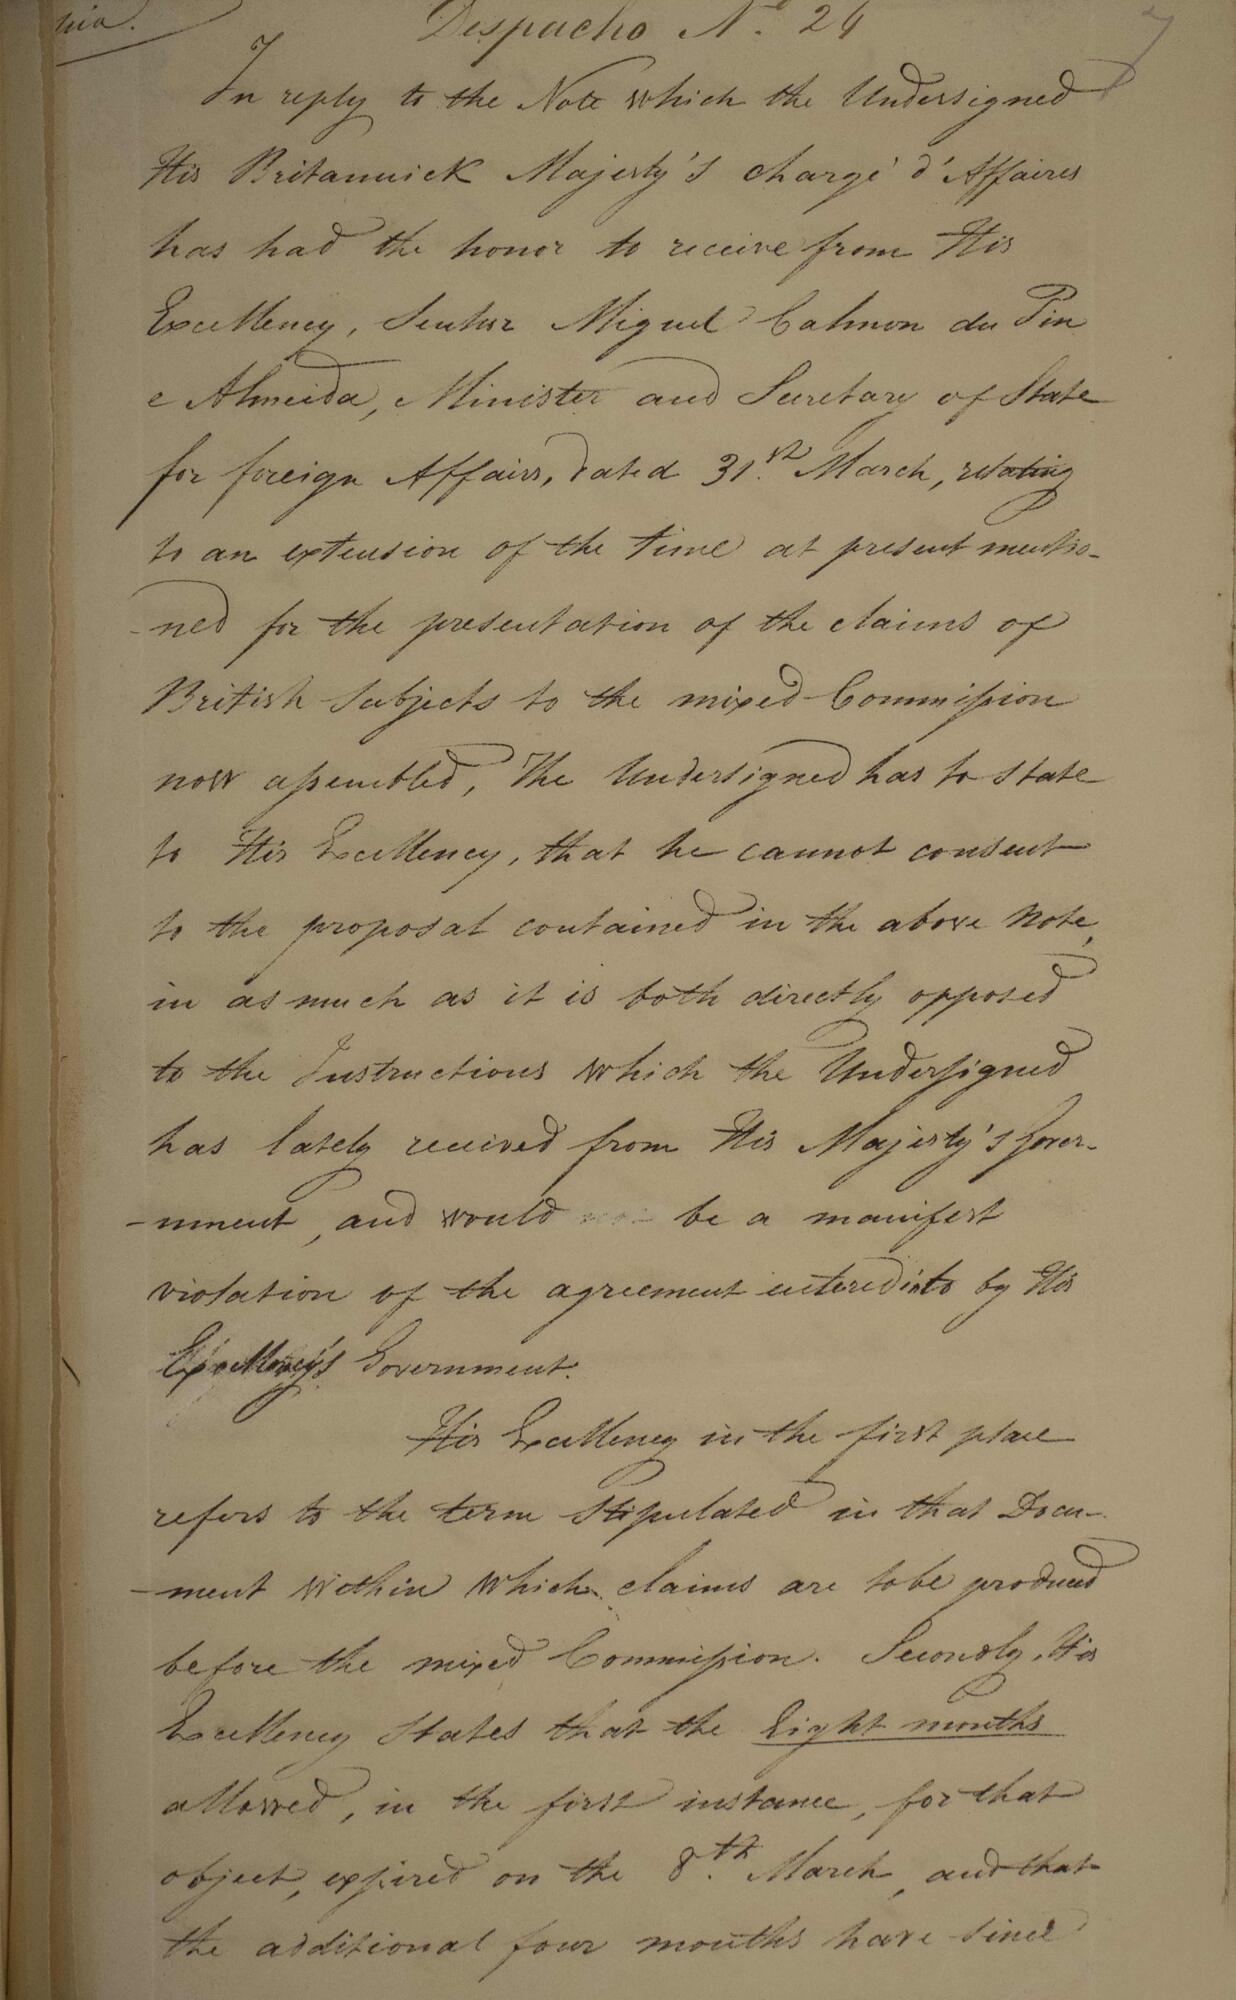 Despacho Nº 24
In reply to the Note which the Undersigned
His Britannick Majesty's chargé d'Affaires
has had the honor to receive from His
Excellency, Senhor Miguel Calmon du Pin
e Almeida, Minister and Secretary of State
for foreign Affairs, dated 31st March, relating
to an extension of the time at present mentio-
-ned for the presentation of the claims of
British Subjects to the mixed Commission
now assembled, The Undersigned has to state
to His Excellency, that he cannot consent
to the proposal contained in the above Note,
in as much as it is both directly opposed
to the Instructions which the Undersigned
has lately received from His Majesty's Gover-
-nment, and would be a manifest
violation of the agreement entered into by His
Excellency's Government.
His Excellency in the first place
refers to the term stipulated in that Docu-
-ment within which claims are to be produced
before the mixed Commission. Secondly, His
Excellency States that the Eight months
allowed, in the first instance, for that
object, expired on the 8th March, and that
the additional four months have since